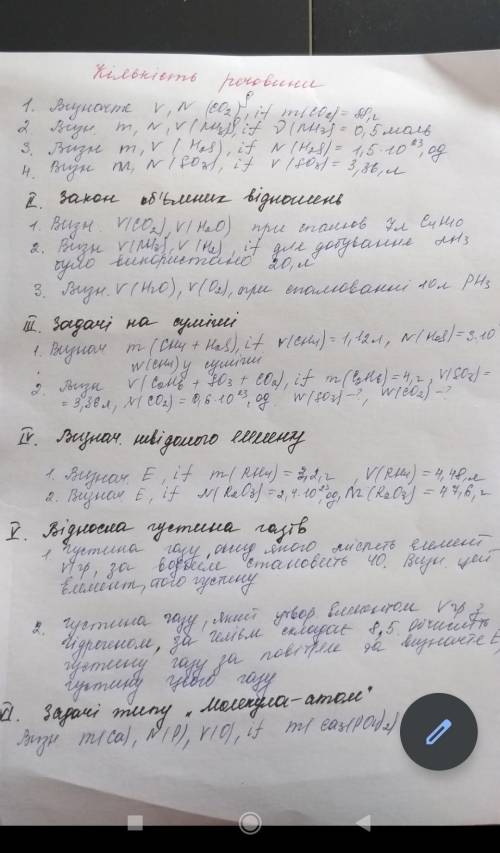 Кількість речовини
1. Визначте V, N (CO2), if m(CO2)=
2. Визн. m, N, V(NH3), if ν(NH3)=0,5 моль
3. Визн m, V(H2S), if N(H2S)=1,5·10²³, од
4. Визн m, N(SO3), if V(SO3)=3,36, л
II. Закон об'ємних відношень
1. Визн. V(CO2), V(H2O) при спалюв 7л C4H10
2. Визн V(N2), V(H2), if для добування NH3
було використано 20, л
3. Визн. V(H2O), V(O2), при спалюванні 10л PH3
III. Задачі на суміші
1. Визнач m(CH4 + H2S), if V(CH4)=1,12л, N(H2S)=3·10
W(CH4) у суміші
2. Визн V(C2H6 + SO3 + CO2), if m(C2H6)=4, г, V(SO3)=
=3,36л, N(CO2)=0,6·10²³, од. W(SO3)-?, W(CO2)-?
IV. Визнач. невідомого елементу
1. Визнач. E, if m(RH4)=3,2, г, V(RH4)=4,48, л
2. Визнач. E, if N(R2O3)= од, m(R2O3)=47,6, г
V. Відносна густина газів
1. Густина газу, оксид якого містить елемент
V гр, за воднем становить 40. Визн. цей
елемент, його густину
2. Густина газу, який утвор елементом V гр з
гідрогеном, за гелієм складає 8,5. Обчисліть
густину газу за повітрям та визначте E,
густину цього газу
VI. Задачі типу „Молекула-атом"
Визн m(Ca), N(P), V(O), if m(Ca3(PO4)2)